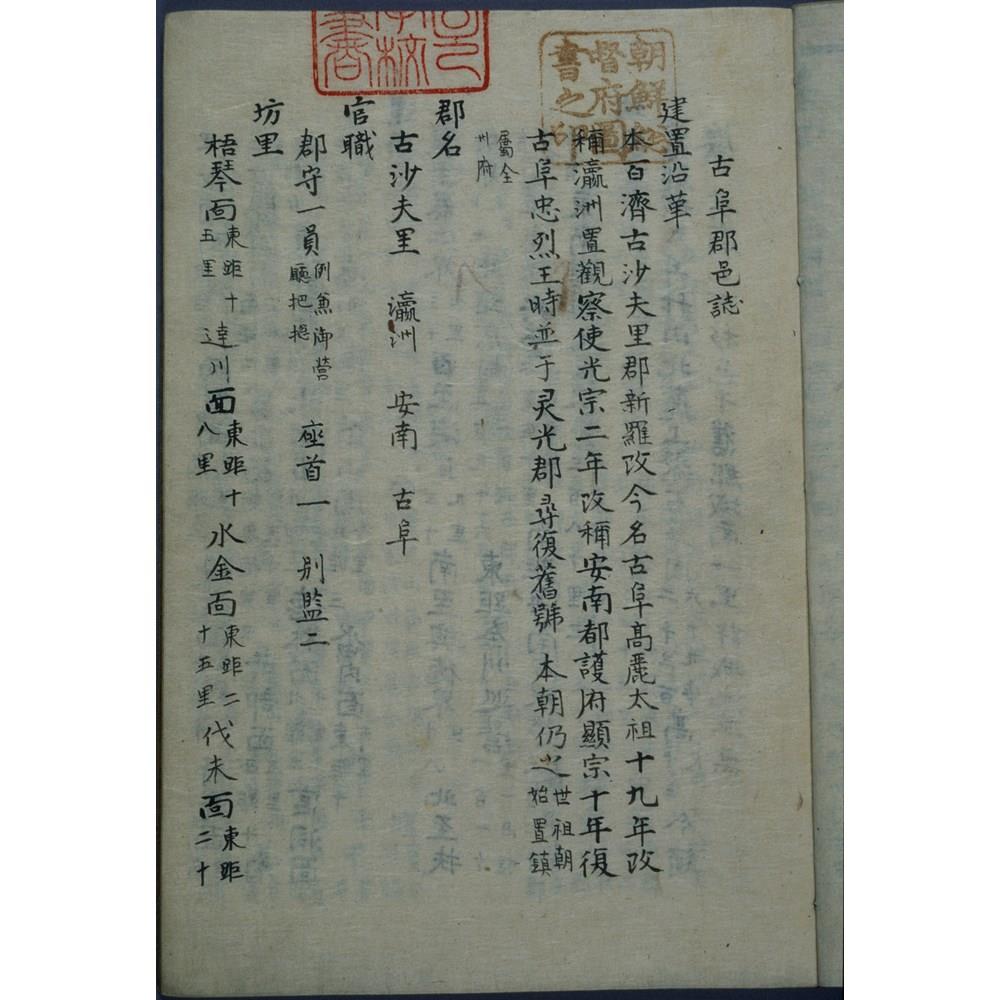 古阜郡邑誌
建置沿革
本百濟古沙夫里郡新羅改今名古阜高麗太祖十九年改
稱瀛洲置觀察使光宗二年改稱安南都護府顯宗十年復
古阜忠烈王時並于灵光郡尋復舊號 本朝仍之世祖朝始置鎮
屬全州府
郡名
古沙夫里 瀛洲 安南 古阜
官職
郡守一員例兼御營廳把摠 座首一 別監二
坊里
梧琴面東距十五里 達川面東距十八里 水金面東距二十五里 伐未面東距二十
朝鮮總督府圖書之印